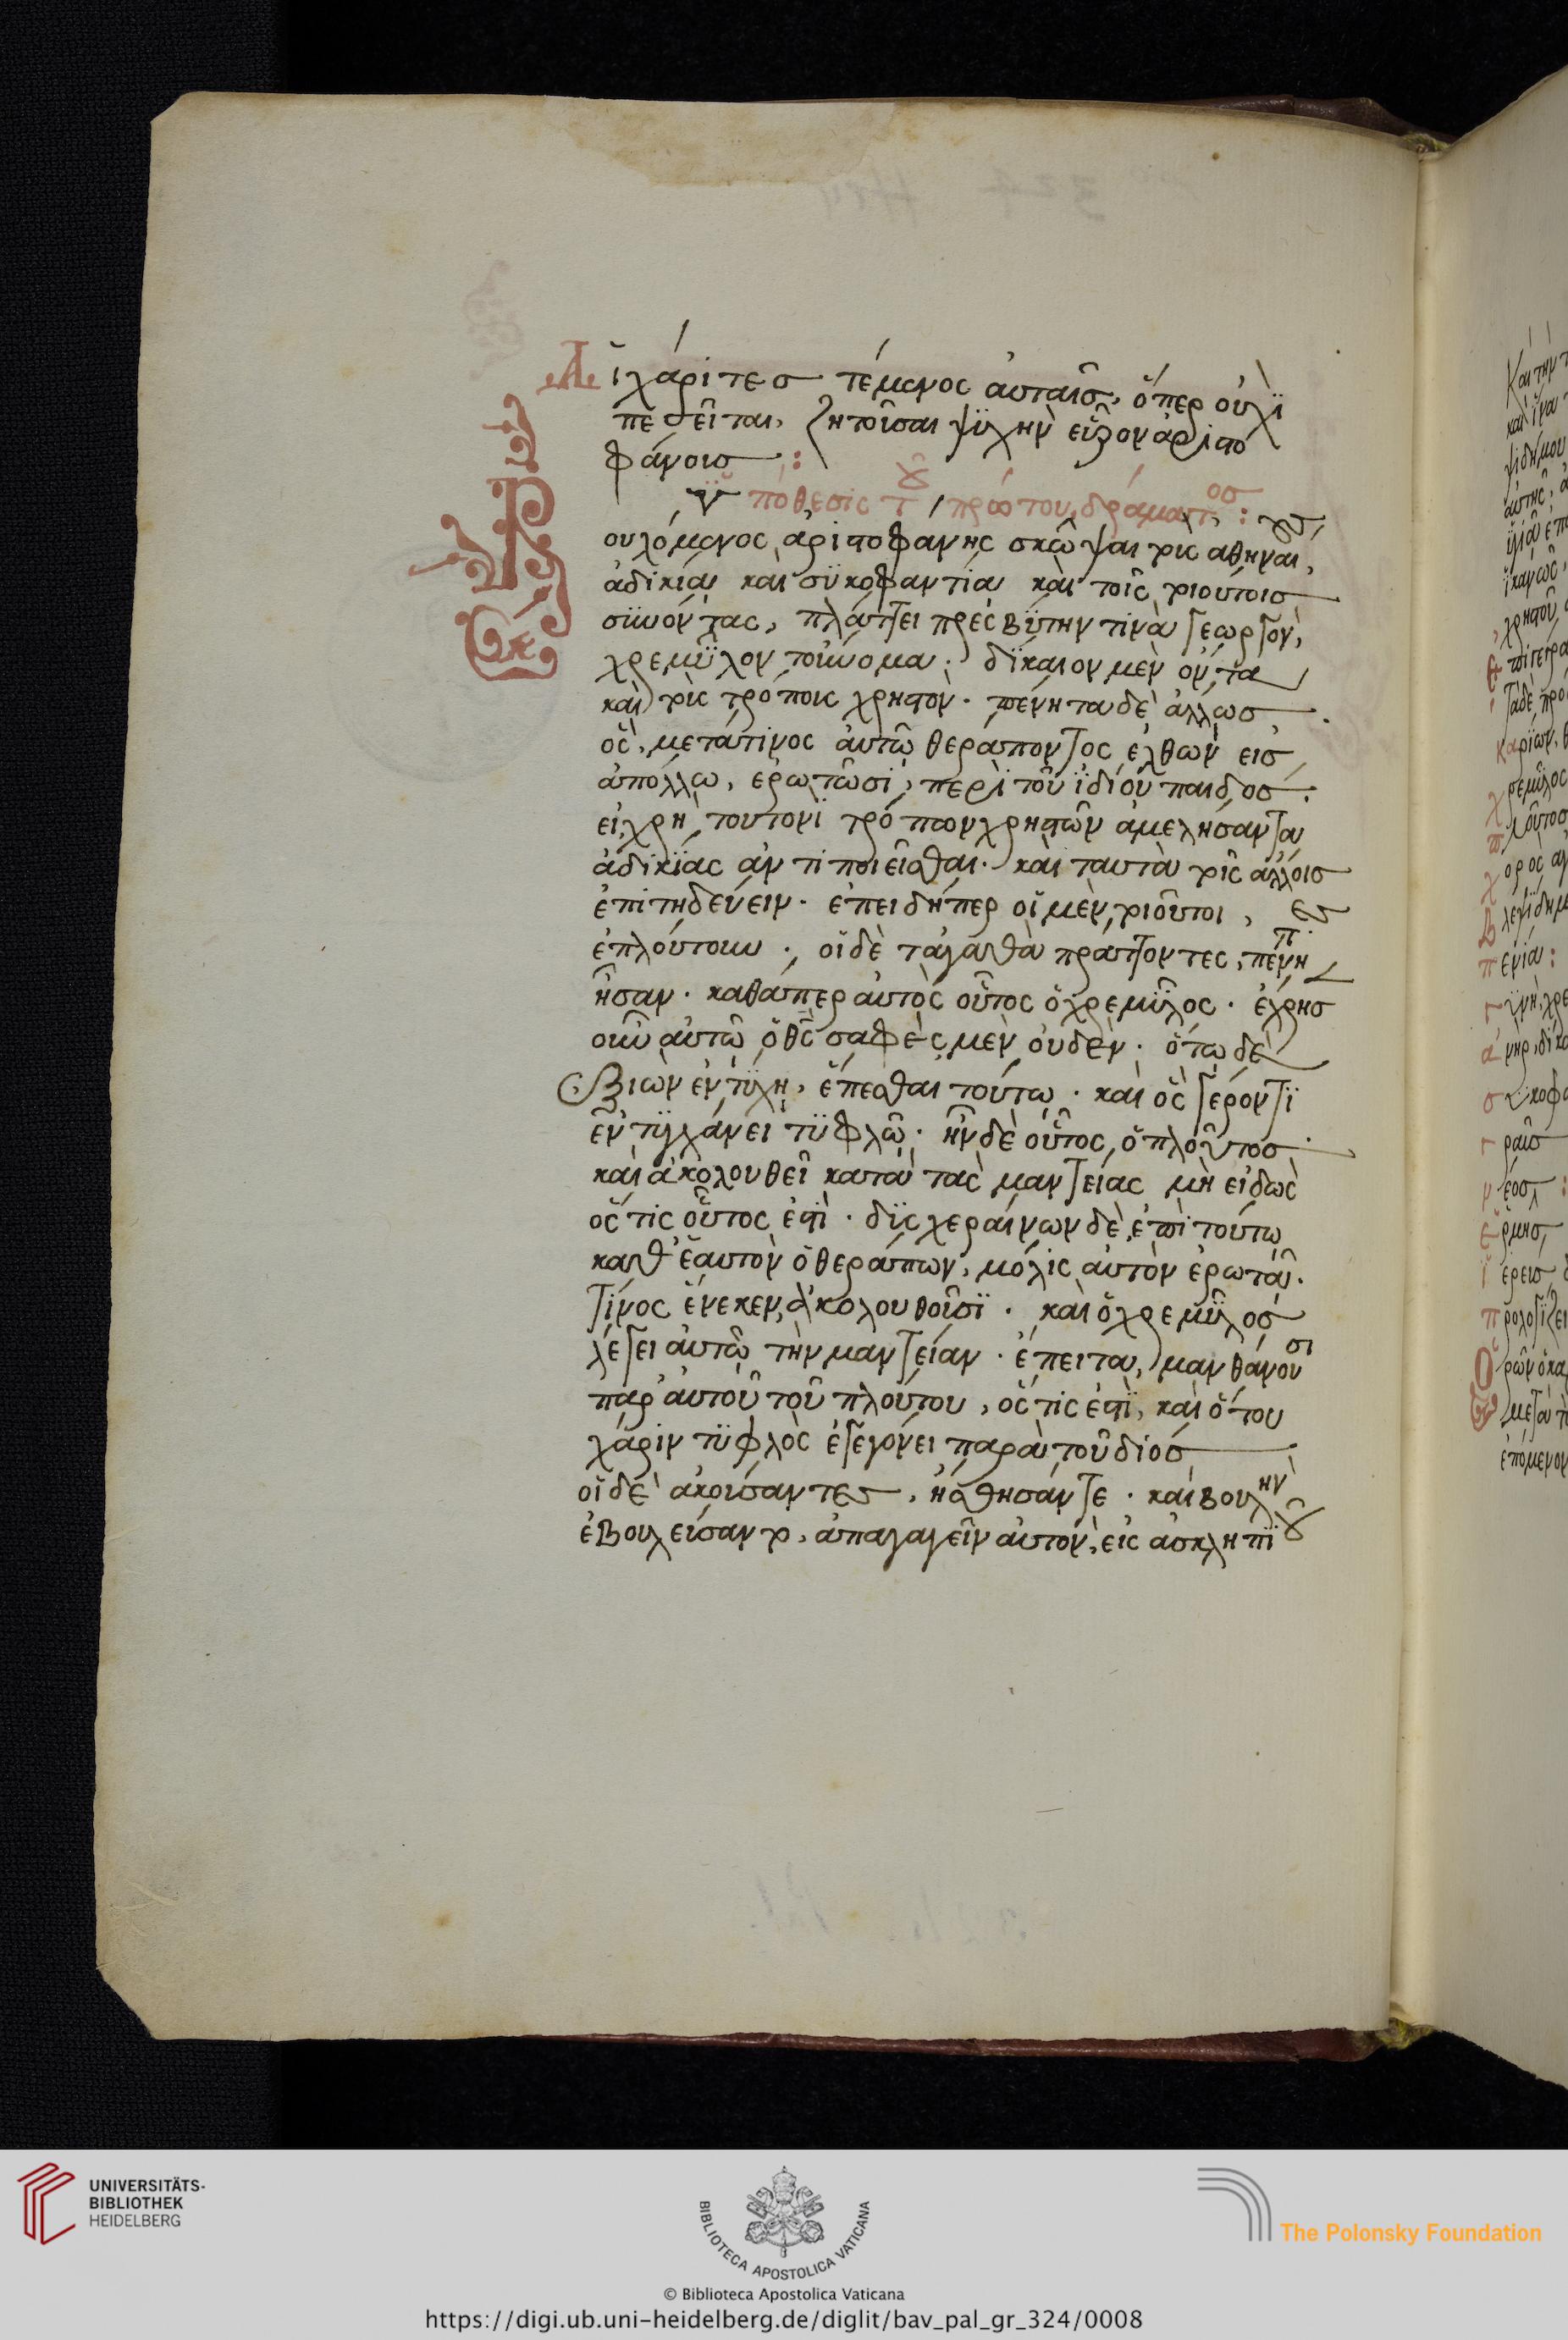 Αἱ χάριτες τέμενος αὑταῖς, ὅπερ οὐχὶ
πεσεῖται, ζητοῦσαι ψυχὴν εὗρον ἀριστο
φάνους :
Ὑπόθεσις τοῦ πρώτου δράματος :
ουλόμενος ἀριστοφάνης σκῶψαι τοὺς ἀθηναίους
ἀδικία καὶ συκοφαντία καὶ τοῖς τοιούτοις
συνόντας, πλάττει πρεσβύτην τινὰ γεωργὸν,
χρεμύλον τοὔνομα· δίκαιον μὲν ὄντα
καὶ τοὺς τρόπους χρηστὸν· πένητα δὲ ἄλλως
ὃς, μετά τινος αὐτῶ θεράποντος ἐλθὼν εἰς
ἀπόλλω, ἐρωτῶσι, περὶ τοῦ ἰδίου παιδὸς.
εἰ χρὴ τουτονὶ τρόπων χρηστῶν ἀμελήσαντα
ἀδικίας ἀντιποιεῖσθαι· καὶ ταυτὰ τοῖς ἄλλοις
ἐπιτηδεύειν· ἐπειδήπερ οἱ μὲν τοιοῦτοι,
ἐπλούτουν· οἱ δὲ τἀγαθὰ πράττοντες, πένη
ἦσαν· καθάπερ αὐτὸς οὗτος ὁ χρεμύλος· ἔχρησ
οὖν αὐτῶ ὁ θς σαφὲς μὲν οὐδὲν· ὅτω δὲ
ἐξιὼν ἐντύχη, ἕπεσθαι τούτω· καὶ ὃς γέροντι
ἐντυγχάνει τυφλῶ· ἦν δὲ οὗτος ὁ πλοῦτος
καὶ ἀκολουθεῖ κατὰ τὰς μαντείας μὴ εἰδὼς
ὅστις οὗτος ἐστὶ· δυσχεραίνων δὲ, ἐπὶ τούτω
καθ' ἑαυτὸν ὁ θεράπων, μόλις αὐτὸν ἐρωτᾶ.
τίνος ἕνεκεν ἀκολουθοῦσι· καὶ ὁ χρεμύλος
λέγει αὐτῶ τὴν μαντείαν· ἔπειτα, μανθάνουσι
παρ' αὐτοῦ τοῦ πλούτου, ὅστις ἐστὶ, καὶ ὅτου
χάριν τυφλὸς ἐγεγόνει παρὰ τοῦ διός
οἱ δὲ ἀκούσαντες, ἥσθησάν τε· καὶ βουλὴν
ἐβουλεύσαντο, ἀπαγαγεῖν αὐτὸν, εἰς ἀσκληπιοῦ
UNIVERSITÄTS-
BIBLIOTHEK
HEIDELBERG
BIBLIOTECA APOSTOLICA VATICANA
The Polonsky Foundation
© Biblioteca Apostolica Vaticana
https://digi.ub.uni-heidelberg.de/diglit/bav_pal_gr_324/0008